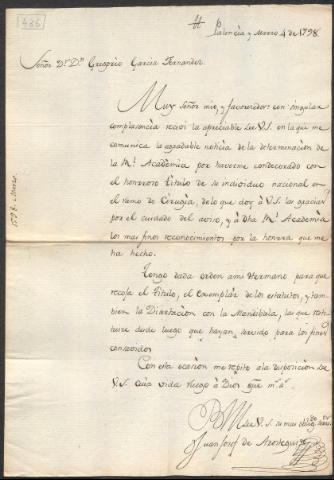 436
Palencia y Marzo 4 de 1798
Señor Dr. Dn. Gregorio Garcia Fernandez
Muy Señor mio, y favorecedor: con singular
complacencia recivi la apreciable de V.S. en la que me
comunica la agradable noticia de la determinacion de
la Rl. Academia por haverme condecorado con
el honroso Titulo de su individuo nacional en
el ramo de Cirugia, de lo que doy à V.S. las gracias
por el cuidado del aviso, y à Dha Rl. Academia
los mas finos reconocimientos por la honrra que me
ha hecho.
Tengo dada orden a mi Hermano para que
recoja el Titulo, el exemplar de los estatutos, y tam-
bien la Disertacion con la Mandibula, las que resti-
tuire desde luego que hayan servido para los fines
consavidos
Con esta ocasion me repito a la disposicion de
V.S. cuia vida ruego à Dios gue ms. as.
BLM de V.S. su mas obligdo servor
Juan Josef de Arostegui
1798. Marzo